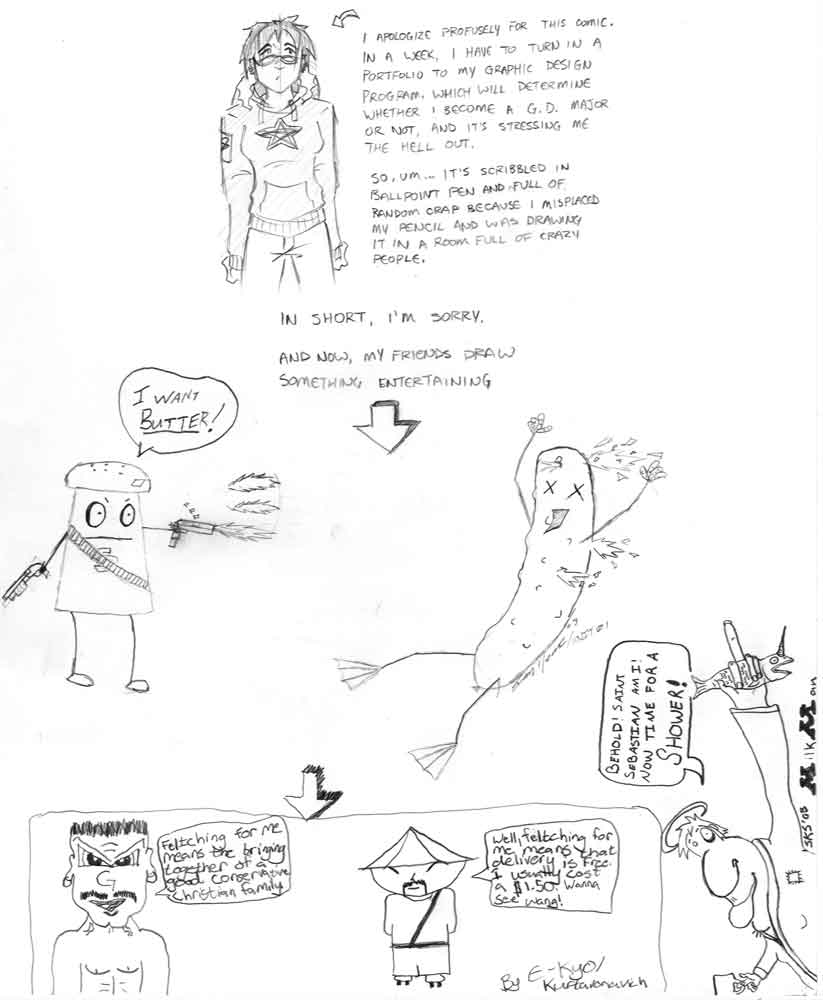 I APOLOGIZE PROFUSELY FOR THIS COMIC.
IN A WEEK, I HAVE TO TURN IN A
PORTFOLIO TO MY GRAPHIC DESIGN
PROGRAM. WHICH WILL DETERMINE
WHETHER I BECOME A G.D. MAJOR
OR NOT, AND IT'S STRESSING ME
THE HELL OUT.
SO, UM... IT'S SCRIBBLED IN
BALLPOINT PEN AND FULL OF
RANDOM CRAP BECAUSE I MISPLACED
MY PENCIL AND WAS DRAWING
IT IN A ROOM FULL OF CRAZY
PEOPLE.
IN SHORT, I'M SORRY.
AND NOW, MY FRIENDS DRAW
SOMETHING ENTERTAINING
I WANT
BUTTER!
BEHOLD! SAINT
SEBASTIAN AM I!
NOW TIME FOR A
SHOWER!
MilkMan
SKS '03
Feltching for me
means the bringing
together of a
good conservative
Christian family.
Well, feltching for
me means that
delivery is free.
I usually cost
a $1.50. Wanna
see wang!
By E-Kyo/